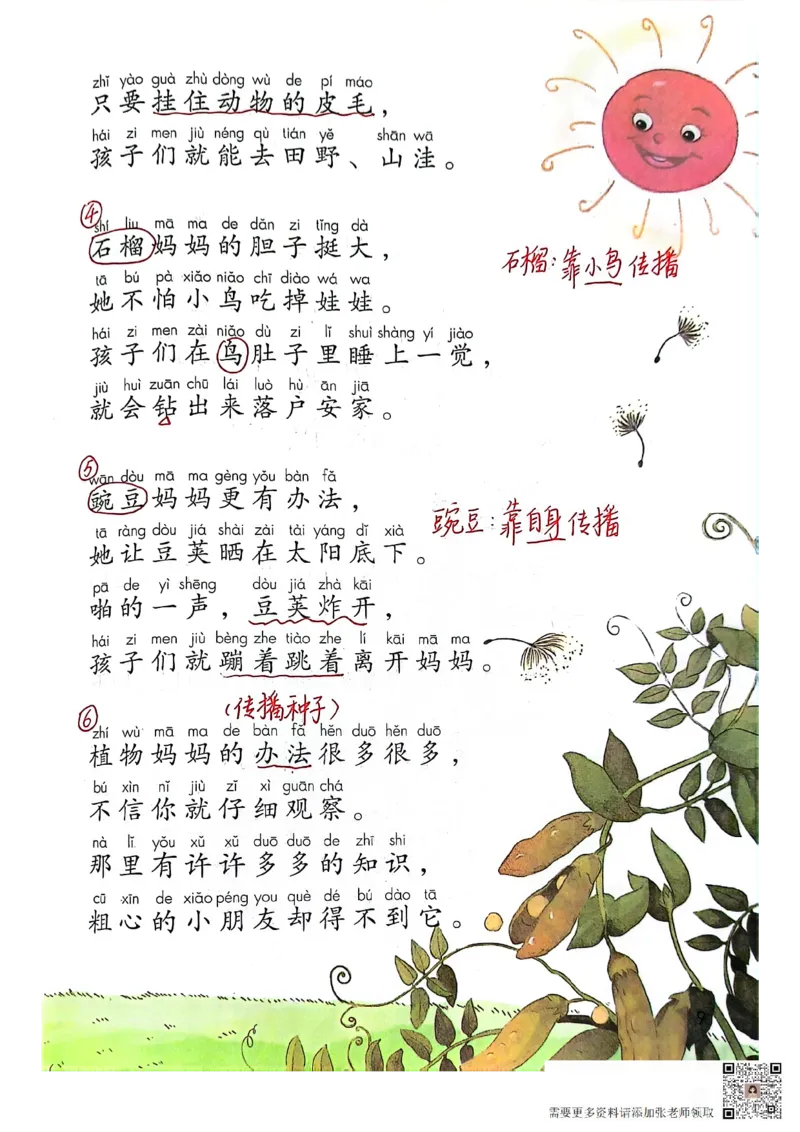 zhī yào guà zhù dòng wù de pí máo
只要挂住动物的皮毛，
hái zi men jiù néng qù tián yě shān wā
孩子们就能去田野、山洼。
④
shí liu mā ma de dǎn zi tǐng dà
石榴妈妈的胆子挺大，
石榴：靠小鸟传播
tā bú pà xiǎo niǎo chī diào wá wa
她不怕小鸟吃掉娃娃。
hái zi men zài niǎo dù zi lǐ shuì shàng yí jiào
孩子们在鸟肚子里睡上一觉，
jiù huì zuān chū lái luò hù ān jiā
就会钻出来落户安家。
⑤
wān dòu mā ma gèng yǒu bàn fǎ
豌豆妈妈更有办法，
豌豆：靠自身传播
tā ràng dòu jiá shài zài tài yáng dǐ xià
她让豆荚晒在太阳底下。
pā de yì shēng dòu jiá zhà kāi
啪的一声，豆荚炸开，
hái zi men jiù bèng zhe tiào zhe lí kāi mā ma
孩子们就蹦着跳着离开妈妈。
⑥
（传播种子）
zhí wù mā ma de bàn fǎ hěn duō hěn duō
植物妈妈的办法很多很多，
bú xìn nǐ jiù zǐ xì guān chá
不信你就仔细观察。
nà lǐ yǒu xǔ xǔ duō duō de zhī shi
那里有许许多多的知识，
cū xīn de xiǎo péng you què dé bú dào tā
粗心的小朋友却得不到它。
9
需要更多资料请添加张老师领取